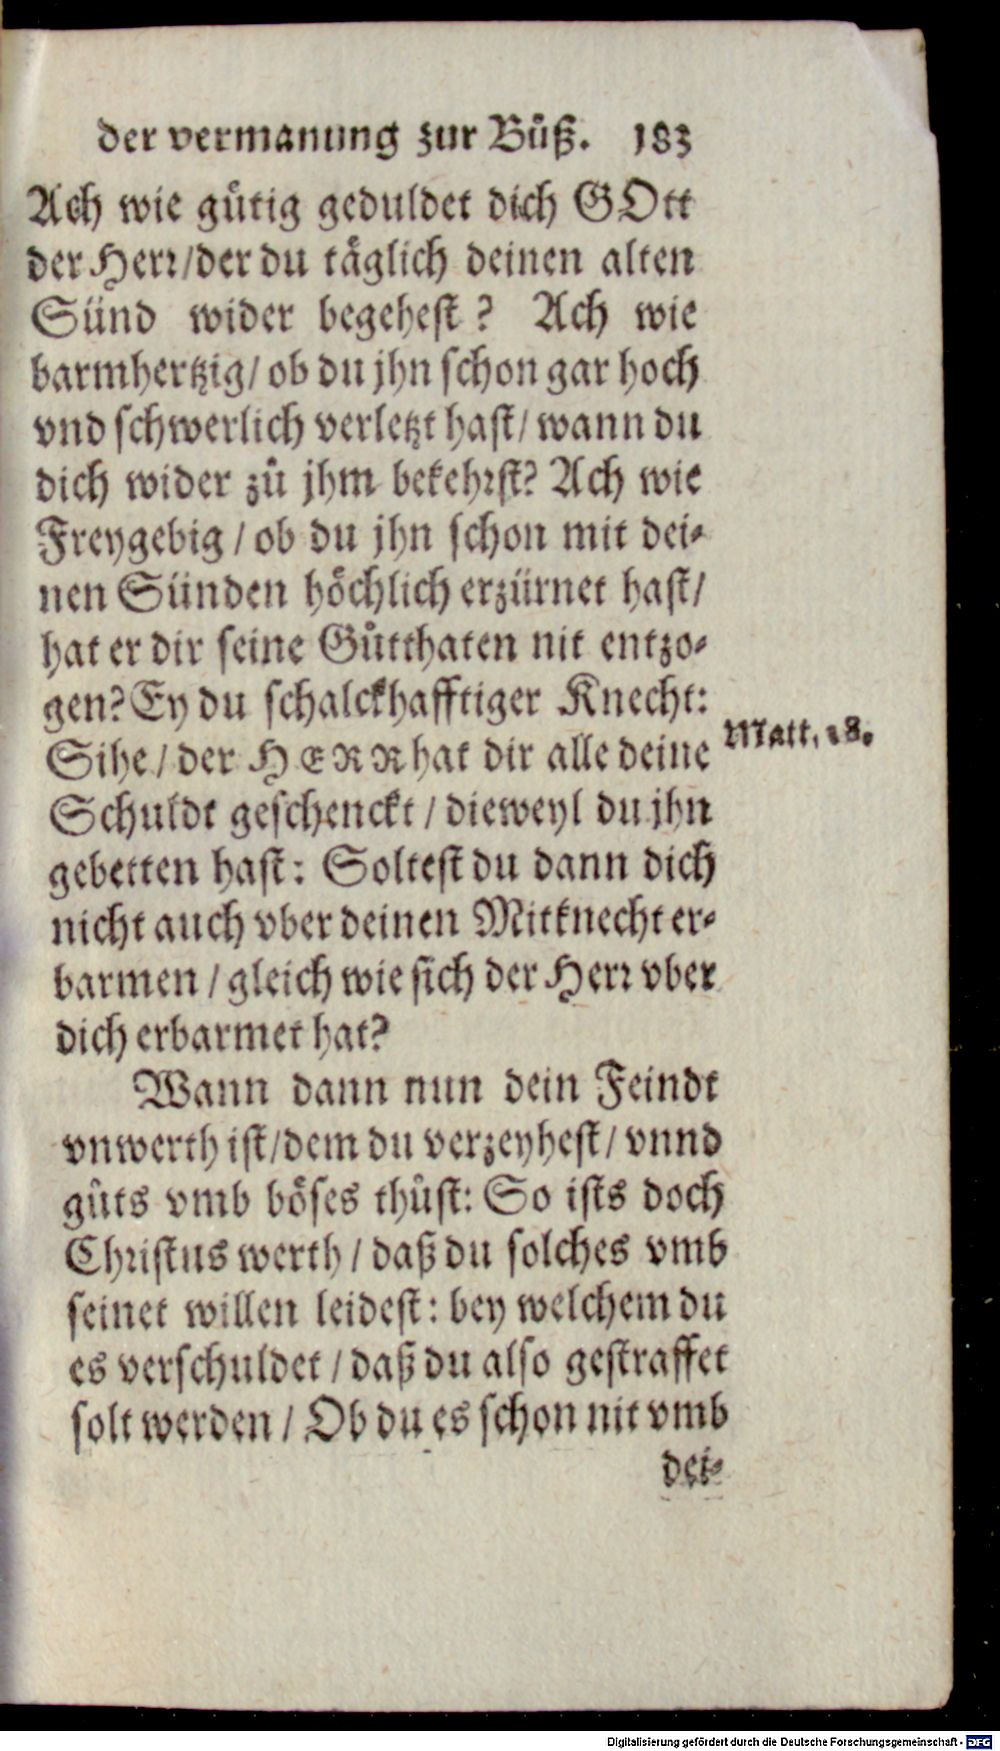 der vermanung zur Bůß. 183
Ach wie gütig geduldet dich GOtt
der Herr/der du täglich deinen alten
Sünd wider begehest? Ach wie
barmhertzig/ ob du jhn schon gar hoch
vnd schwerlich verletzt hast/ wann du
dich wider zů jhm bekehrst? Ach wie
Freygebig / ob du jhn schon mit dei-
nen Sünden höchlich erzürnet hast/
hat er dir seine Gůtthaten nit entzo-
gen? Ey du schalckhafftiger Knecht:
Sihe / der HERR hat dir alle deine
Matt. 18.
Schuldt geschenckt / dieweyl du jhn
gebetten hast: Soltest du dann dich
nicht auch vber deinen Mitknecht er-
barmen / gleich wie sich der Herr vber
dich erbarmet hat?
Wann dann nun dein Feindt
vnwerth ist/dem du verzeyhest/ vnnd
gůts vmb böses thůst: So ists doch
Christus werth / daß du solches vmb
seinet willen leidest: bey welchem du
es verschuldet / daß du also gestraffet
solt werden / Ob du es schon nit vmb
dei-
Digitalisierung gefördert durch die Deutsche Forschungsgemeinschaft - DFG